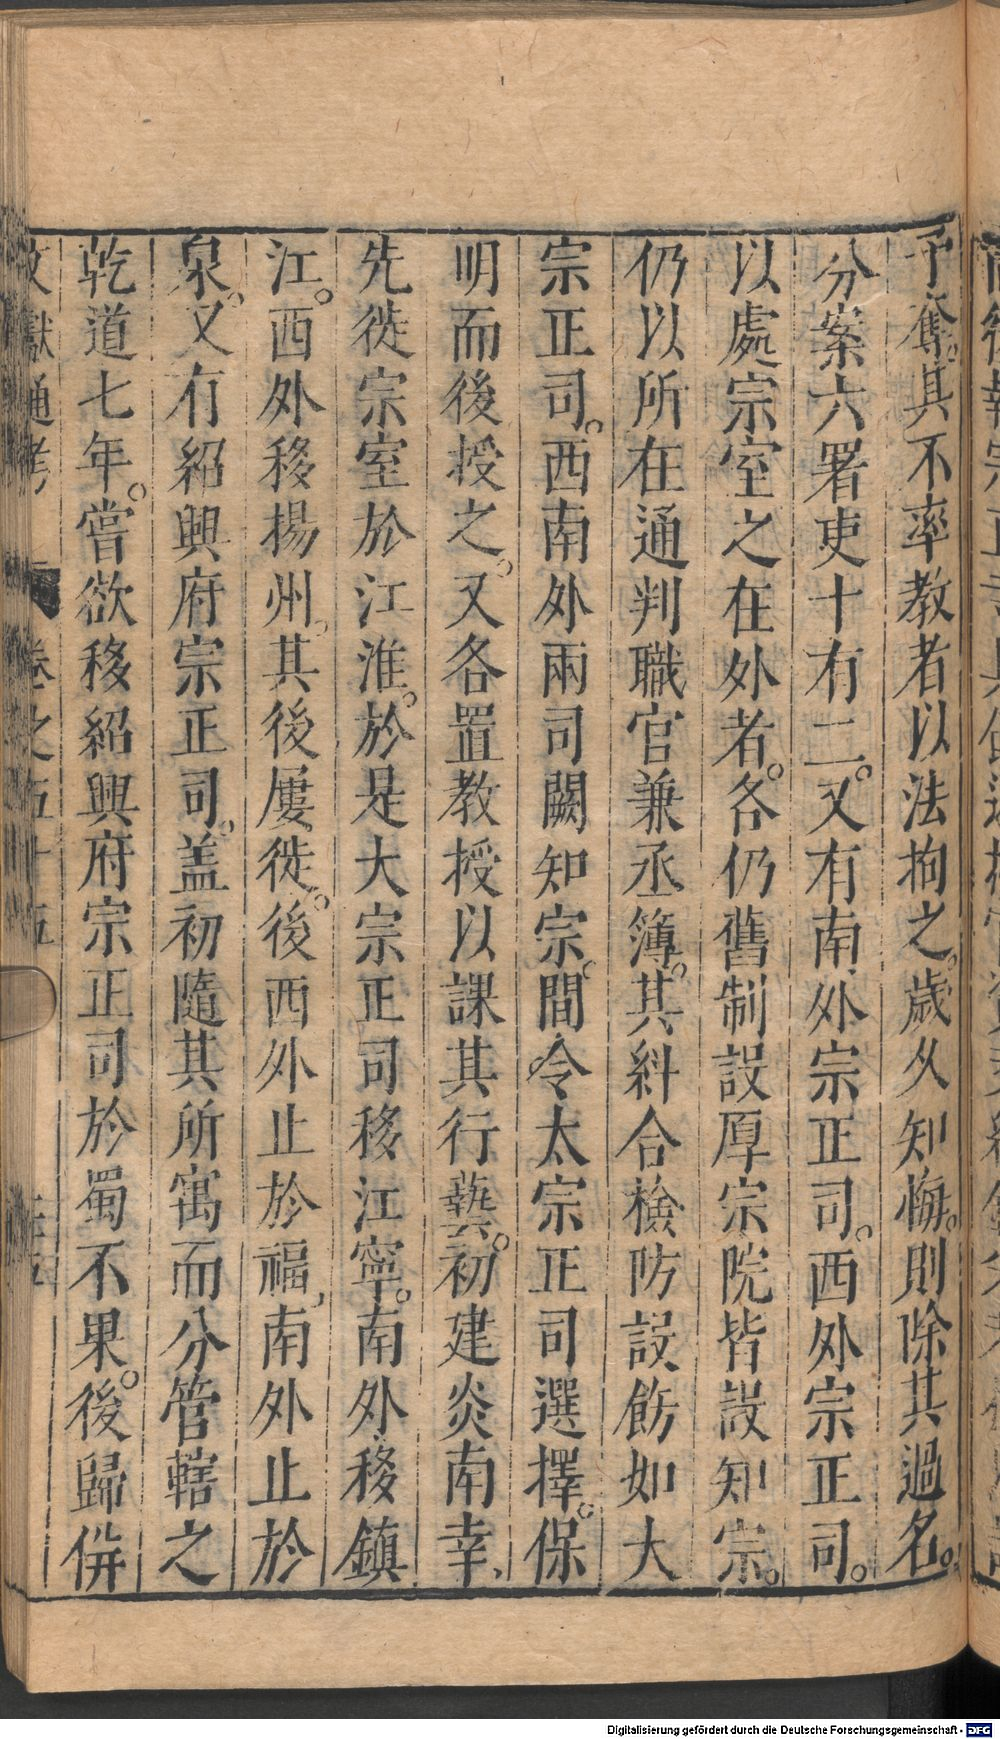 予奪。其不率教者以法拘之。歲久知悔。則除其過名。
分案六署吏十有二。又有南外宗正司。西外宗正司。
以處宗室之在外者。各仍舊制設厚宗院皆設知宗。
仍以所在通判職官兼丞簿。其糾合檢防設飭如大
宗正司。西南外兩司闕知宗。間令太宗正司選擇。保
明而後授之。又各置教授以課其行藝。初建炎南幸、
先徙宗室於江淮。於是大宗正司移江寧。南外移鎮
江。西外移揚州。其後屢徙。後西外止於福、南外止於
泉。又有紹興府宗正司。盖初隨其所寓而分管轄之
乾道七年。嘗欲移紹興府宗正司於蜀不果。後歸倂
文獻通考 卷之五十五
Digitalisierung gefördert durch die Deutsche Forschungsgemeinschaft - DFG